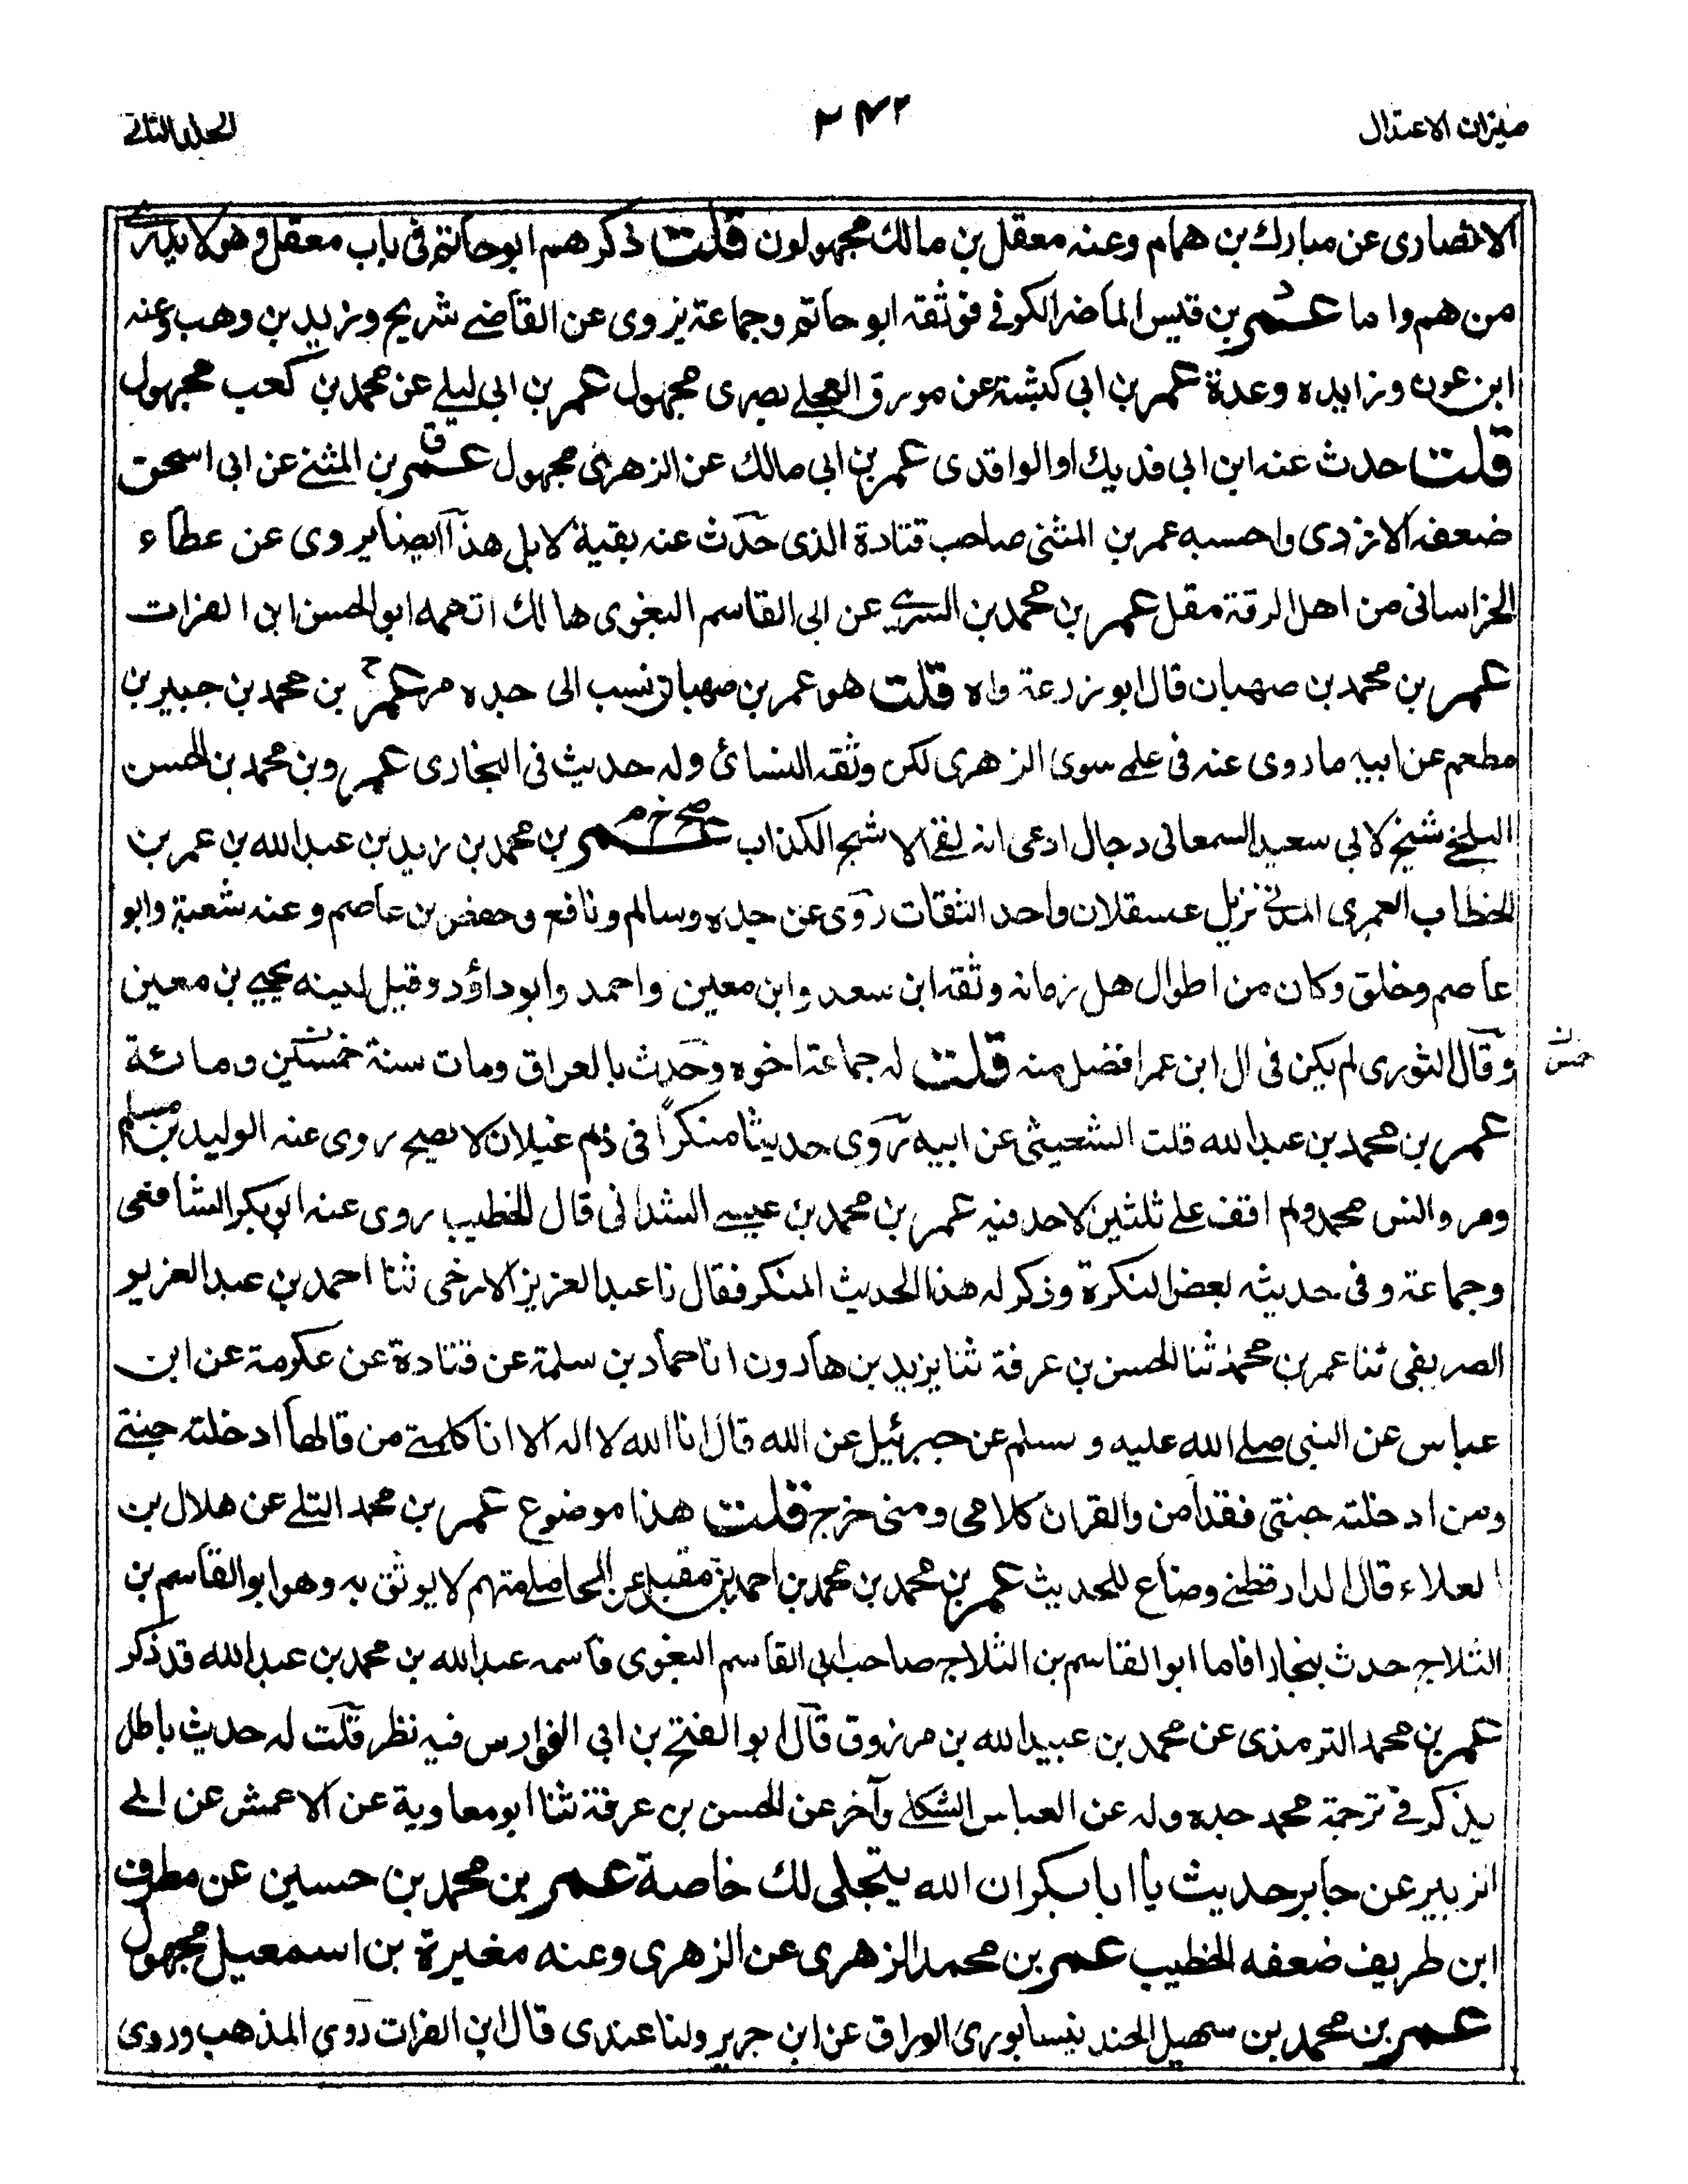 ميزان الاعتدال
الجلد الثاني
الانصارى عن مبارك بن همام وعنه معقل بن مالك مجهولون قلت ذكرهم ابو حاتم فى باب معقل وهو لا يدرے
من هم واما عمر بن قيس الماصر الكوفى فوثقه ابو حاتم وجماعة يروى عن القاضے شريح وزيد بن وهب وعنه
ابن عون وزايده وعدة عمر بن ابى كبشة عن مورق العجلے بصرى مجهول عمر بن ابى ليلے عن محمد بن كعب مجهول
قلت حدث عنه ابن ابى فديك او الواقدى عمر بن ابى مالك عن الزهرى مجهول عمر بن المثنے عن ابى اسحق
ضعفه الازدى واحسبه عمر بن المثنى صاحب قتادة الذى حدث عنه بقية لا بل هذا ايضا يروى عن عطاء
الخراسانى من اهل الرقة مقل عمر بن محمد بن السرے عن ابى القاسم البغوى هالك اتهمه ابو الحسن ابن الفرات
عمر بن محمد بن صهبان قال ابو زرعة واه قلت هو عمر بن صهبان نسب الى جده عمر بن محمد بن جبير بن
مطعم عن ابيه ما روى عنه فى علمے سوى الزهرى لكن وثقه النسائى وله حديث فى البخارى عمرو بن محمد بن الحسن
البلخے شيخ لابى سعيد السمعانى دجال ادعى انه لقے الاشج الكذاب عمر بن محمد بن زيد بن عبد الله بن عمر بن
الخطاب العمرى المدنے نزيل عسقلان واحد الثقات روى عن جده وسالم ونافع وحفص بن عاصم وعنه شعبة وابو
عاصم وخلق وكان من اطوال هل زمانه وثقه ابن سعد وابن معين واحمد وابو داؤد وقيل لينه يحيے بن معين
وقال الثورى لم يكن فى ال ابن عمر افضل منه قلت له جماعة اخوه وحدث بالعراق ومات سنة خمسين ومائة
عمر بن محمد بن عبد الله قلت الشعيثى عن ابيه روى حديثا منكرا فى ذم غيلان لا يصح روى عنه الوليد بن مسلم
ومروالنس محمد ولم اقف علے ثلثين لاحد فيه عمر بن محمد بن عيسے السذانى قال الخطيب روى عنه ابو بكر الشافعى
وجماعة وفى حديثه بعض النكرة وذكر له هذا الحديث المنكر فقال نا عبد العزيز الارخى ثنا احمد بن عبد العزيز
الصريفى ثنا عمر بن محمد ثنا الحسن بن عرفة ثنا يزيد بن هارون انا حماد بن سلمة عن قتادة عن عكرمة عن ابن
عباس عن النبى صلے الله عليه وسلم عن جبرئيل عن الله قال انا الله لا اله الا انا كلمتے من قالها ادخلته جنتے
ومن ادخلته جنتى فقد امن والقران كلامى ومنى خرج قلت هذا موضوع عمر بن محمد التلے عن هلال بن
العلاء قال الدارقطنے وضاع للحديث عمر بن محمد بن محمد بن احمد بن مقبل عن المحاملے متهم لا يوثق به وهو ابو القاسم بن
الثلاج حدث بنجارا فاما ابو القاسم بن الثلاج صاحب ابى القاسم البغوى فاسمه عبد الله بن محمد بن عبد الله قد ذكر
عمر بن محمد الترمذى عن محمد بن عبيد الله بن مرزوق قال ابو الفتح بن ابى الفوارس فيه نظر قلت له حديث باطل
يذكر فے ترجمة محمد جده وله عن العباس الشكلے وآخر عن الحسن بن عرفة ثنا ابو معاوية عن الاعمش عن ابے
الزبير عن جابر حديث يا ابا بكر ان الله يتجلى لك خاصة عمر بن محمد بن حسين عن مطرف
ابن طريف ضعفه الخطيب عمر بن محمد الزهرى عن الزهرى وعنه مغيرة بن اسمعيل مجهول
عمر بن محمد بن سهيل الجنديسابورى الوراق عن ابن جرير ولنا عندى قال ابن الفرات روى المذهب وروى